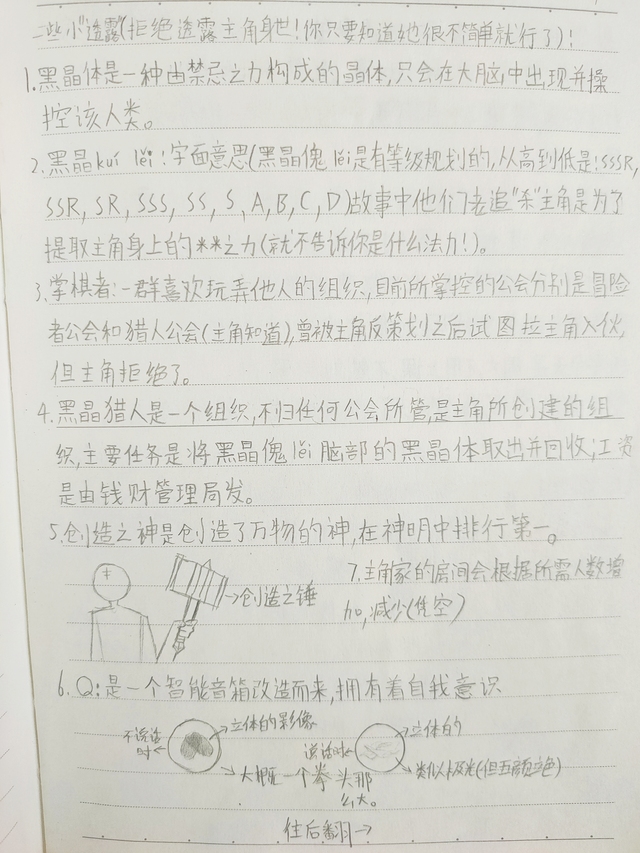 一些小"透露(拒绝透露主角身世!你只要知道她很不简单就行了)!
1.黑晶体是一种由禁忌之力构成的晶体,只会在大脑中出现并操
控该人类。
2.黑晶kuí lěi:字面意思(黑晶傀lěi是有等级规划的,从高到低是:SSSR,
SSR,SR,SSS,SS,S、A,B,C,D)故事中他们老追"杀"主角是为了
提取主角身上的**之力(就不告诉你是什么法力!)。
3.掌棋者:一群喜欢玩弄他人的组织,目前所掌控的公会分别是冒险
者公会和猎人公会(主角知道),曾被主角反策划之后试图拉主角入伙,
但主角拒绝了。
4.黑晶猎人是一个组织,不归任何公会所管,是主角所创建的组
织,主要任务是将黑晶傀lěi脑部的黑晶体取出并回收;工资
是由钱财管理局发。
5.创造之神是创造了万物的神,在神明中排行第一。
→创造之锤
7.主角家的房间会根据所需人数增
加,减少(凭空)
6.Q:是一个智能音箱改造而来,拥有着自我意识
不说话
时←
→立体的影像
→大概一个拳头那
么大。
说话时←
→立体的
→类似极光(但五颜六色)
往后翻→